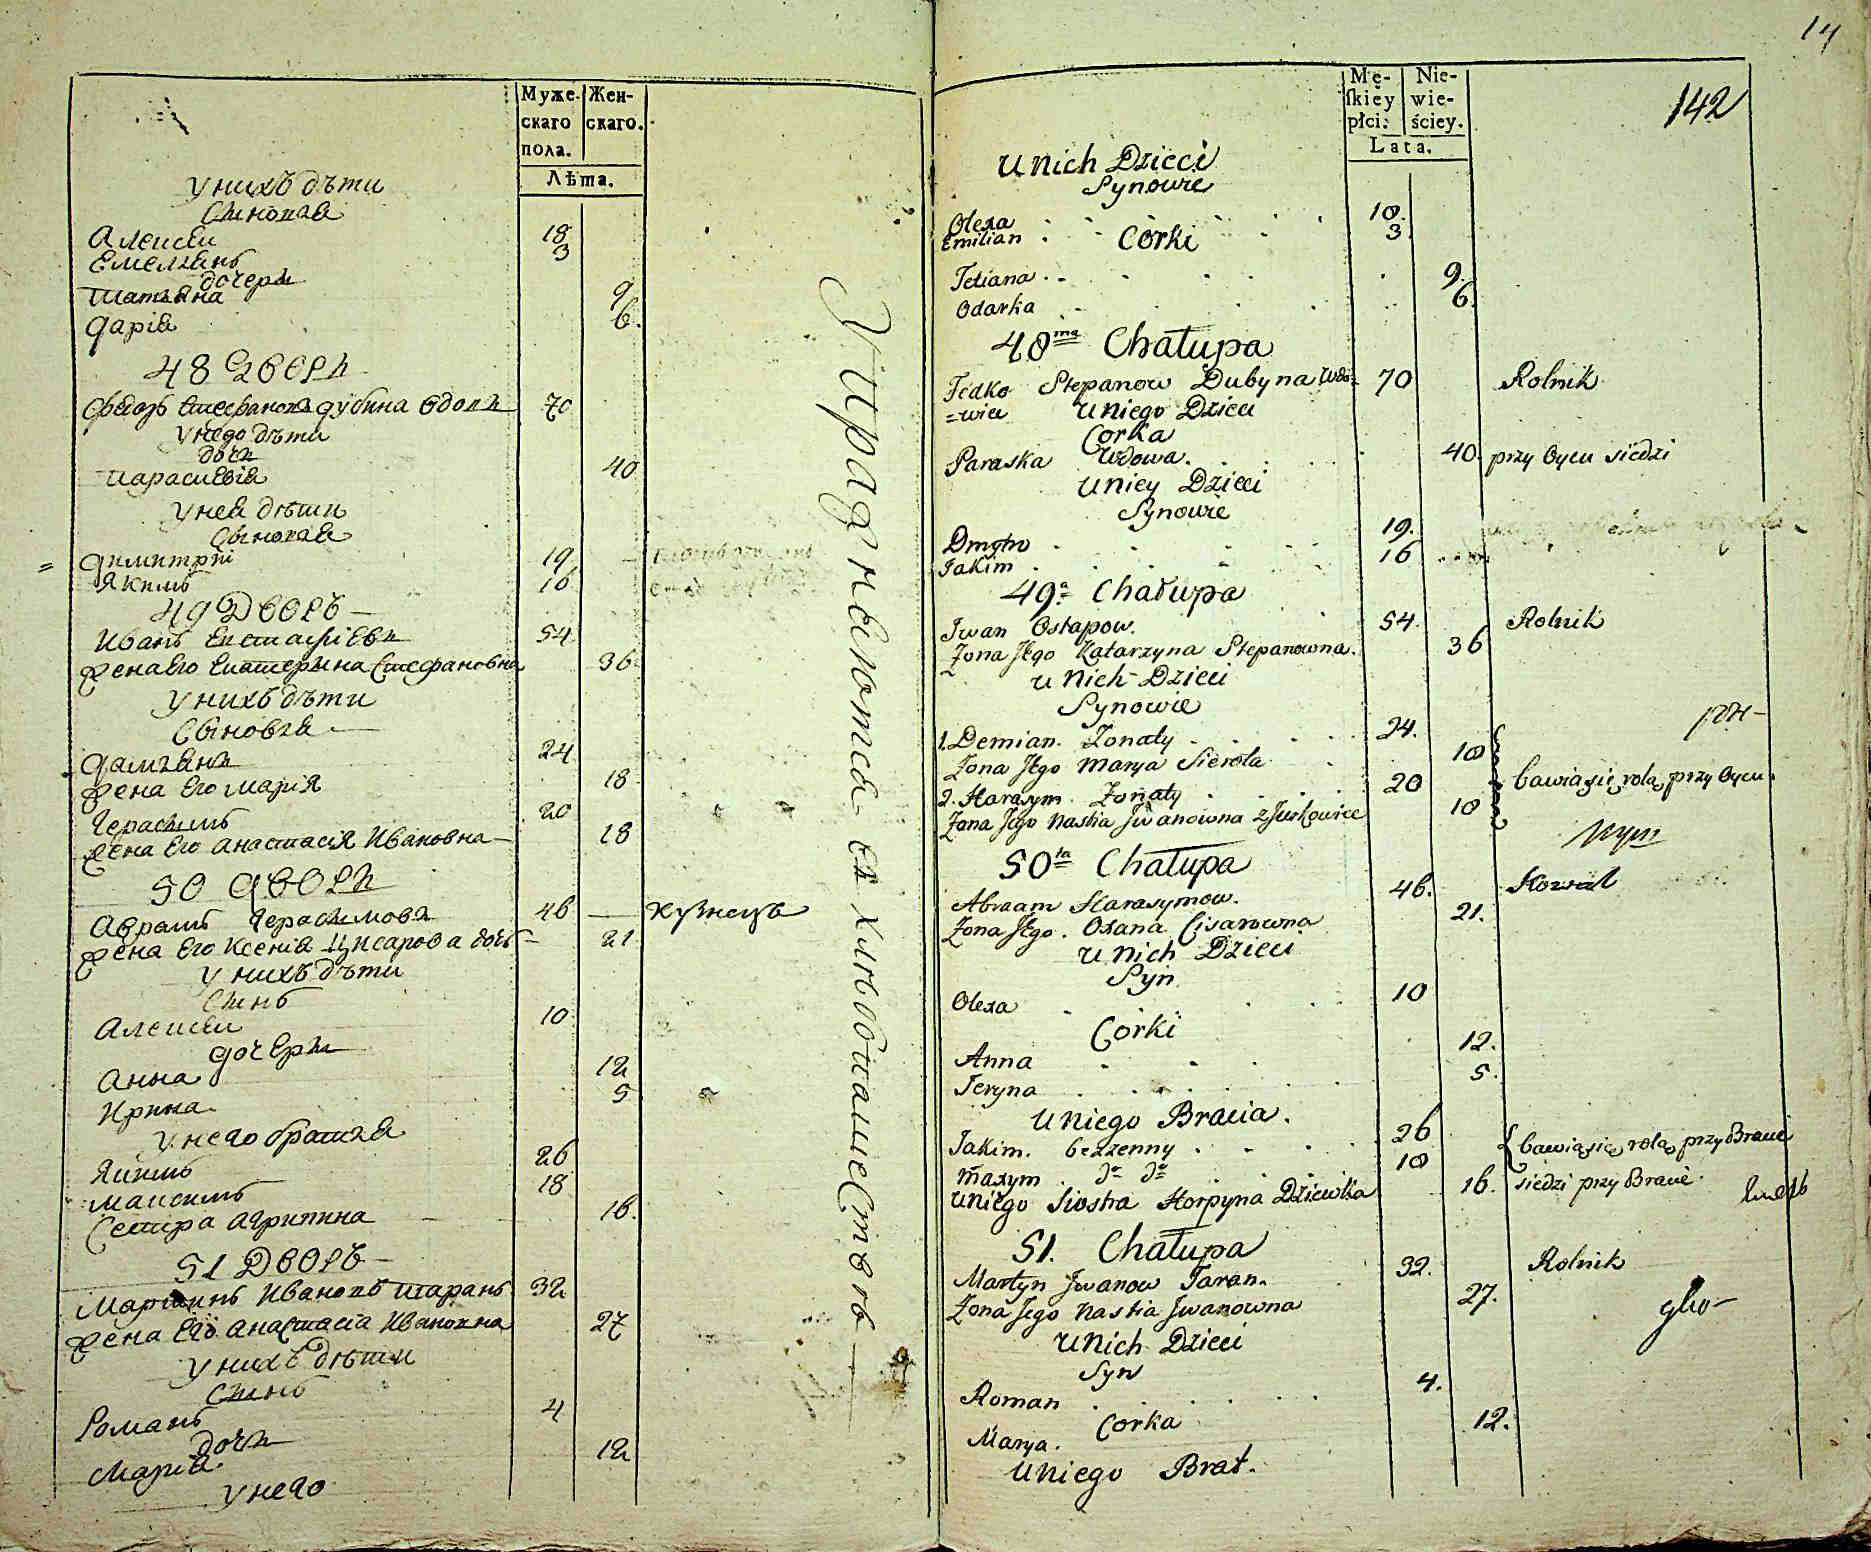 Муже-
скаго
пола.
Жен-
скаго.
Лѣта.
у нихъ дѣти
Сыновья
Алексѣй 18
Емельянъ 3
дочери
Татьяна 9
Дарія 6.
48 Дворъ
Федоръ Стефановъ Дубина вдовъ 70
у него дѣти
дочь
Параскевія 40
у неи дѣти
Сыновья
= Димитрій 19
Якимъ 16
49 Дворъ
Иванъ Евстафіевъ 54
Жена Его Екатерина Стефановна 36.
у нихъ дѣти
Сыновья
Дамьянъ 24
Жена Его Марія 18.
Герасимъ 20
Жена Его Анастасія Ивановна 18
50 Дворъ
Аврамъ Герасимовъ 46 — кузнецъ
Жена Его Ксенія Цисарова дочь 21
у нихъ дѣти
Сынъ
Алексѣй 10
дочери
Анна 12
Ирина 5
у него братья
Якимъ 26
Максимъ 18
Сестра Агрипина 16.
51 Дворъ
Мартинъ Ивановъ Таранъ 32
Жена Его Анастасія Ивановна 27
у нихъ дѣти
Сынъ
Романъ 4
дочь
Марія 12
у него
Упражняются въ хлѣбопашествѣ
14
142
Mę-
ſkiey
płci.
Nie-
wie-
ściey.
Lata.
u Nich Dzieci
Synowie
Olexa 18.
Emilian 3.
Corki
Tetiana 9.
Odarka 6.
48ma Chałupa
Fedko Stepanow Dubyna Wdo- 70 Rolnik
=wiec u Niego Dzieci
Corka
Paraska Wdowa. 40. przy Oycu siedzi
u Niey Dzieci
Synowie
Dmytro 19.
Jakim 16
49a Chałupa
Jwan Ostapow. 54. Rolnik
Zona Jego Katarzyna Stepanowna. 36
u Nich Dzieci
Synowie
1. Demian. Zonaty 24.
Zona Jego Marya Sierota 18
2. Harasym. Zonaty 20 bawią się rolą przy Oycu.
Zona Jego Nastia Jwanowna z Jurkowiec 18
50ta Chałupa
Abraam Harasymow. 46. Kowal
Zona Jego. Oxana Cisarowna 21.
u Nich Dzieci
Syn
Olexa 10
Corki
Anna 12.
Jeryna 5.
u Niego Bracia.
Jakim. bezzenny 26 bawią się rolą przy Bracie
Maxym do do 18
u Niego Siostra Horpyna Dziewka 16. siedzi przy Bracie.
51. Chałupa
Martyn Jwanow Taran. 32. Rolnik
Zona Jego Nastia Jwanowna 27.
u Nich Dzieci
Syn
Roman 4.
Corka
Marya. 12.
u Niego Brat.